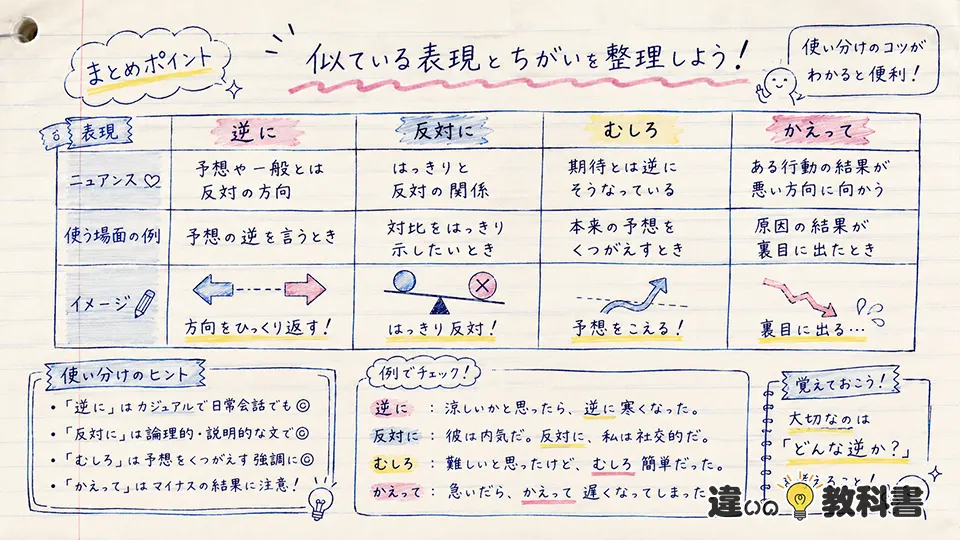 まとめポイント
似ている表現とちがいを整理しよう!
使い分けのコツが
わかると便利!
表現
逆に
反対に
むしろ
かえって
ニュアンス♡
予想や一般とは
反対の方向
はっきりと
反対の関係
期待とは逆に
そうなっている
ある行動の結果が
悪い方向に向かう
使う場面の例
予想の逆を言うとき
対比をはっきり
示したいとき
本来の予想を
くつがえすとき
原因の結果が
裏目に出たとき
イメージ
方向をひっくり返す!
はっきり反対!
予想をこえる!
裏目に出る…
使い分けのヒント
・「逆に」はカジュアルで日常会話でも◎
・「反対に」は論理的・説明的な文で◎
・「むしろ」は予想をくつがえす強調に◎
・「かえって」はマイナスの結果に注意!
例でチェック!
逆に : 涼しいかと思ったら、逆に寒くなった。
反対に : 彼は内気だ。反対に、私は社交的だ。
むしろ : 難しいと思ったけど、むしろ簡単だった。
かえって : 急いだら、かえって遅くなってしまった
覚えておこう!
大切なのは
「どんな逆か?」
えること!
違いの教科書